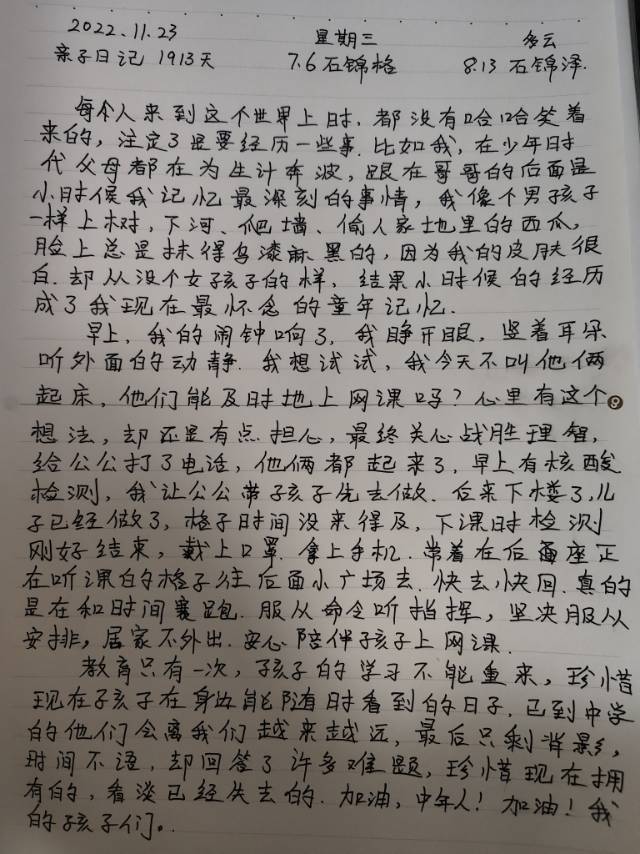 2022.11.23 星期三 多云
亲子日记 1913天 7.6 石锦格 8.13 石锦泽.
每个人来到这个世界上时.都没有哈哈笑着
来的,注定了是要经历一些事.比如我,在少年时
代父母都在为生计奔波,跟在哥哥的后面是
小时候我记忆最深刻的事情,我像个男孩子
一样上树,下河、爬墙、偷人家地里的西瓜,
脸上总是抹得乌漆麻黑的,因为我的皮肤很
白.却从没个女孩子的样,结果小时候的经历
成了我现在最怀念的童年记忆.
早上,我的闹钟响了,我睁开眼,竖着耳朵
听外面的动静.我想试试,我今天不叫他俩
起床,他们能及时地上网课吗?心里有这个
想法,却还是有点担心,最终关心战胜理智,
给公公打了电话,他俩都起来了,早上有核酸
检测,我让公公带孩子先去做.后来下楼了,儿
子已经做了,格子时间没来得及,下课时检测
刚好结束,戴上口罩.拿上手机.带着在后面座正
在听课的格子往后面小广场去.快去快回.真的
是在和时间赛跑.服从命令听指挥,坚决服从
安排,居家不外出.安心陪伴孩子上网课.
教育只有一次,孩子的学习不能重来,珍惜
现在孩子在身边能随时看到的日子.已到中学
的他们会离我们越来越远,最后只剩背影,
时间不语,却回答了许多难题,珍惜现在拥
有的,看淡已经失去的.加油,中年人!加油!我
的孩子们。.